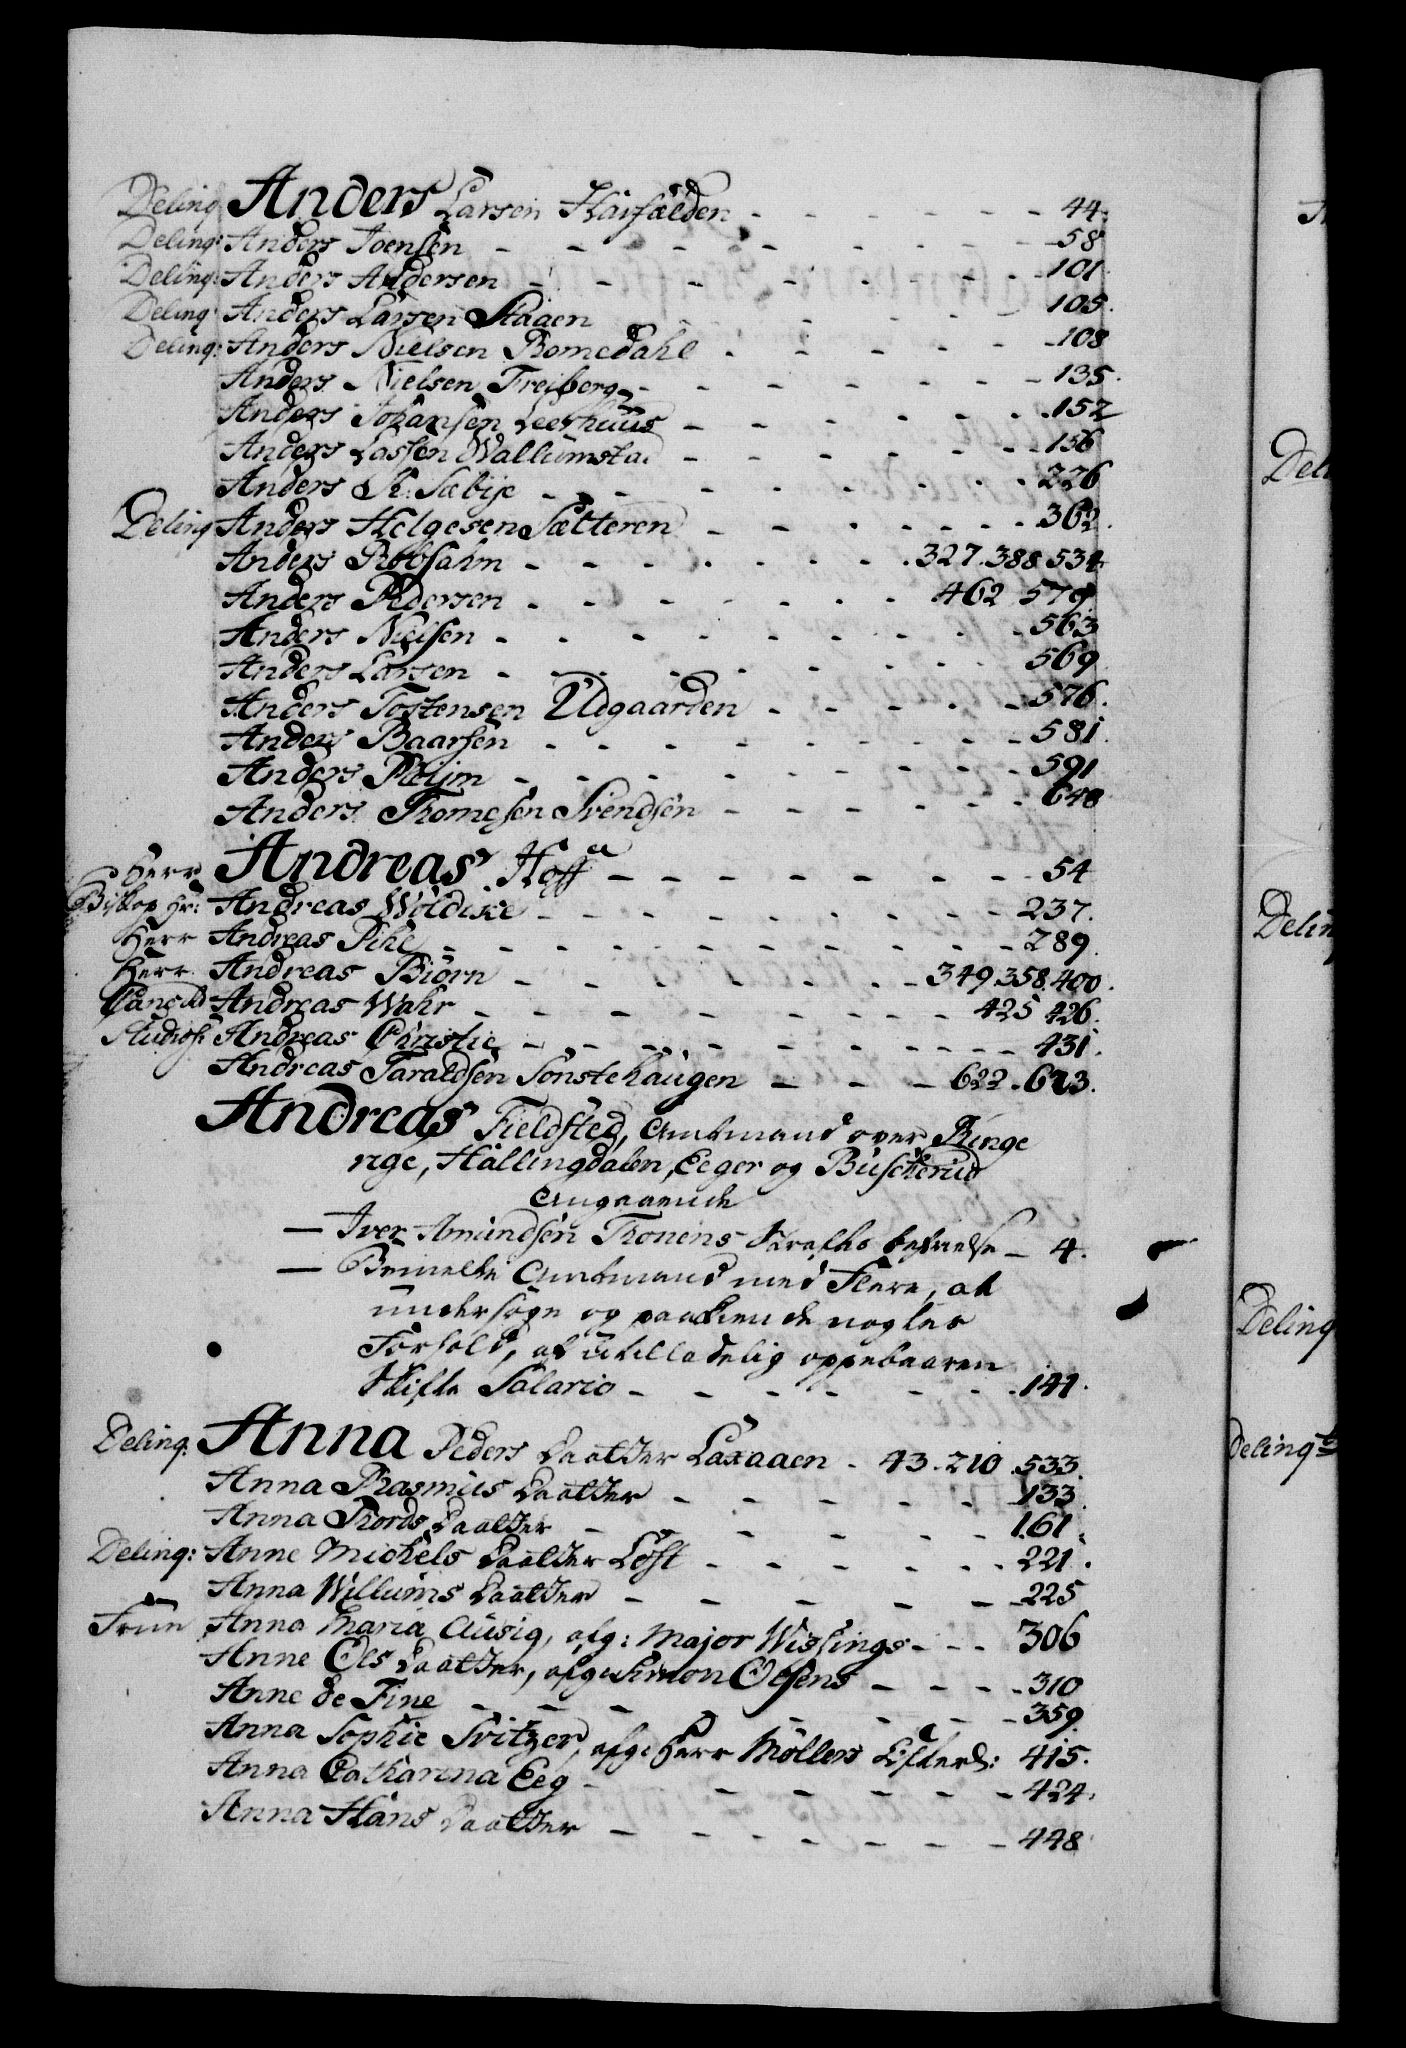 Delinq Anders Larsen Haifælden - - - - - - 44.
Delinq: Anders Joensen - - - - - - 58
Delinq: Anders Andersen - - - - - - 101
Delinq: Anders Larsen Skaaen - - - - 105.
Delinq: Anders Nielsen Romedahl - - - - - 108
Anders Nielsen Freiberg - - - - - - 135.
Anders Johansen Leerhuus - - - - - 152
Anders Lassen Wallumstad - - - - - 156
Anders Sæbye - - - - - - 226
Delinq Anders Helgesen Sætteren - - - - - - 362.
Anders Robsahm - - - - - - 327. 388. 534.
Anders Pedersen - - - - - - 462 579
Anders Nielsen - - - - - - - 563
Anders Larsen - - - - - - 569
Anders Tostensen Udgaarden - - - - - 576.
Anders Baarsen - - - - - - - 581.
Anders Pæijm - - - - - - - 591
Anders Thomesen Svendsen - - - - - 648
Herr Andreas Hoff - - - - - - - 54
Biskop Hr: Andreas Wöldike - - - - - - - 237.
Herr Andreas Pihl - - - - - - - - 289.
Herr Andreas Biörn - - - - - - 349. 358. 400.
Cancellie Andreas Wahr - - - - - - 425 426.
Studios: Andreas Christie - - - - - - - 431.
Andreas Taraldsen Sonstehaugen - - - 622. 623.
Andreas Fieldsted, Amtmand over Ringe
rige, Hallingdalen, Eeger og Buscherud
Angaaende
— Iver Amundsen Thonens Straffes befrielse - 4.
— Bemelte Amtmand med Flere, at
undersøge og paakiende nogles
Forhold, at utilladelig oppebaaren
Skifte Salario - - - - - - 141.
Delinq. Anna Peders Daatter Laxaaen - 43. 210. 533.
Anna Rasmus Daatter - - - - - 133.
Anna Thords Daatter - - - - - - 161.
Delinq: Anne Michels Daatter Löst - - - - - 221.
Anna Willums Daatter - - - - - 225
Frue Anna Maria Ausig, afg: Major Wissings - - - 306
Anne Ols Daatter, afg: Simon Olsens - - - - 310
Anne de Fine - - - - - - - 359.
Anna Sophie Svitzer, afg: Herr Möllers Efterl: 415.
Anna Catharina Eeg - - - - - - 424.
Anna Hans Daatter - - - - - - 448
Delinq
Delinq
Delinqt